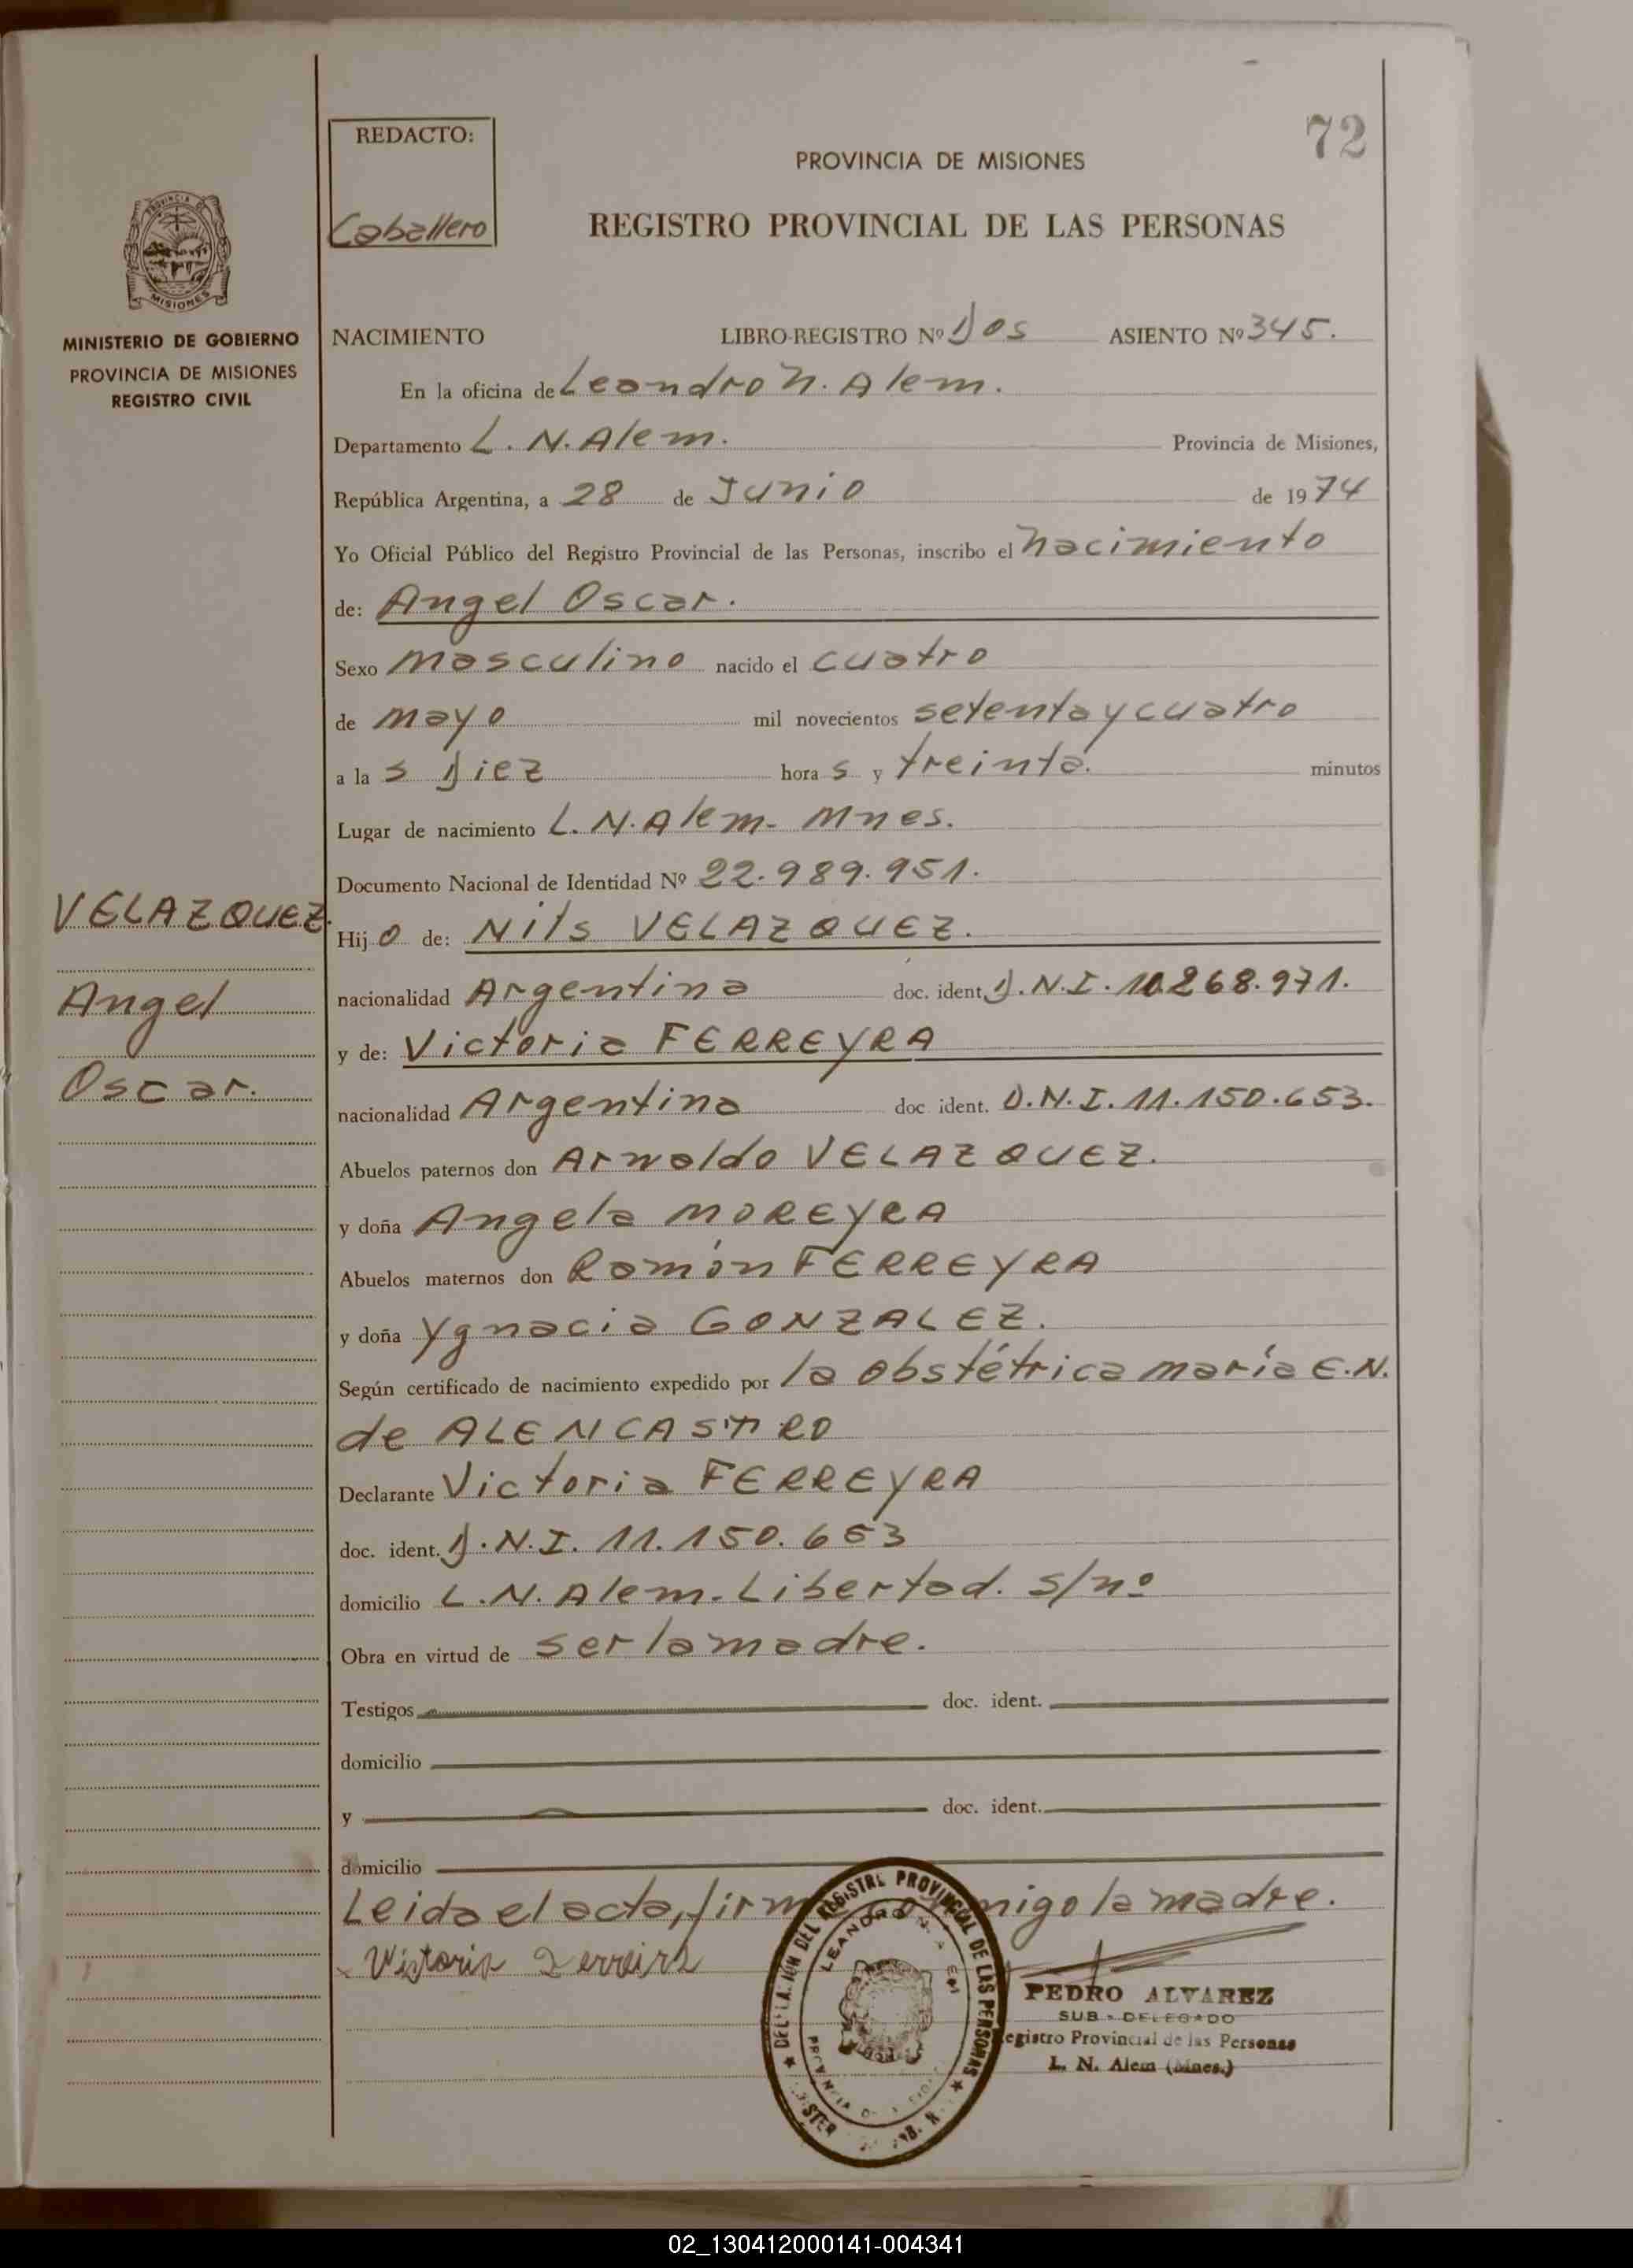 72
REDACTO:
Caballero
PROVINCIA DE MISIONES
REGISTRO PROVINCIAL DE LAS PERSONAS
MISIONES
MINISTERIO DE GOBIERNO
PROVINCIA DE MISIONES
REGISTRO CIVIL
VELAZQUEZ.
Angel
Oscar.
NACIMIENTO LIBRO-REGISTRO Nº Dos ASIENTO Nº 345.
En la oficina de Leandro N. Alem.
Departamento L. N. Alem. Provincia de Misiones,
República Argentina, a 28 de Junio de 1974
Yo Oficial Público del Registro Provincial de las Personas, inscribo el nacimiento
de: Angel Oscar.
Sexo masculino nacido el cuatro
de mayo mil novecientos setenta y cuatro
a la s Diez hora s y treinta. minutos
Lugar de nacimiento L. N. Alem. Mnes.
Documento Nacional de Identidad Nº 22.989.951.
Hij o de: Nils VELAZQUEZ.
nacionalidad Argentina doc. ident. D.N.I. 10.268.971.
y de: Victoria FERREYRA
nacionalidad Argentina doc ident. D.N.I. 11.150.653.
Abuelos paternos don Arnoldo VELAZQUEZ.
y doña Angela MOREYRA
Abuelos maternos don Ramón FERREYRA
y doña Ygnacia GONZALEZ.
Según certificado de nacimiento expedido por la obstétrica maría E.N.
de ALENCASTRO
Declarante Victoria FERREYRA
doc. ident. D.N.I. 11.150.653
domicilio L. N. Alem. Libertad. s/nº
Obra en virtud de ser la madre.
Testigos doc. ident.
domicilio
y doc. ident.
domicilio
Leida el acta, firma conmigo la madre.
Victoria Ferreira
PEDRO ALVAREZ
SUB - DELEGADO
egistro Provincial de las Personas
L. N. Alem (Mnes.)
02_130412000141-004341